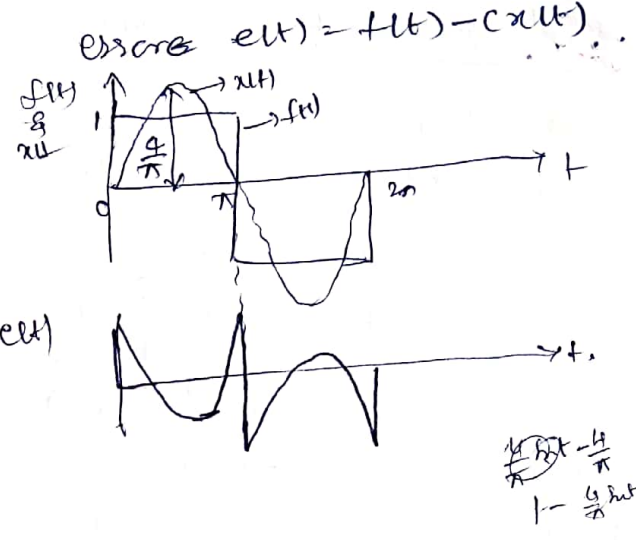 error e(t) = f(t) - C x(t)
f(t)
&
x(t
1
→ x(t)
→ f(t)
4/π
0
π
2π
t
e(t)
t.
4/π sint - 4/π
1 - 4/π sint